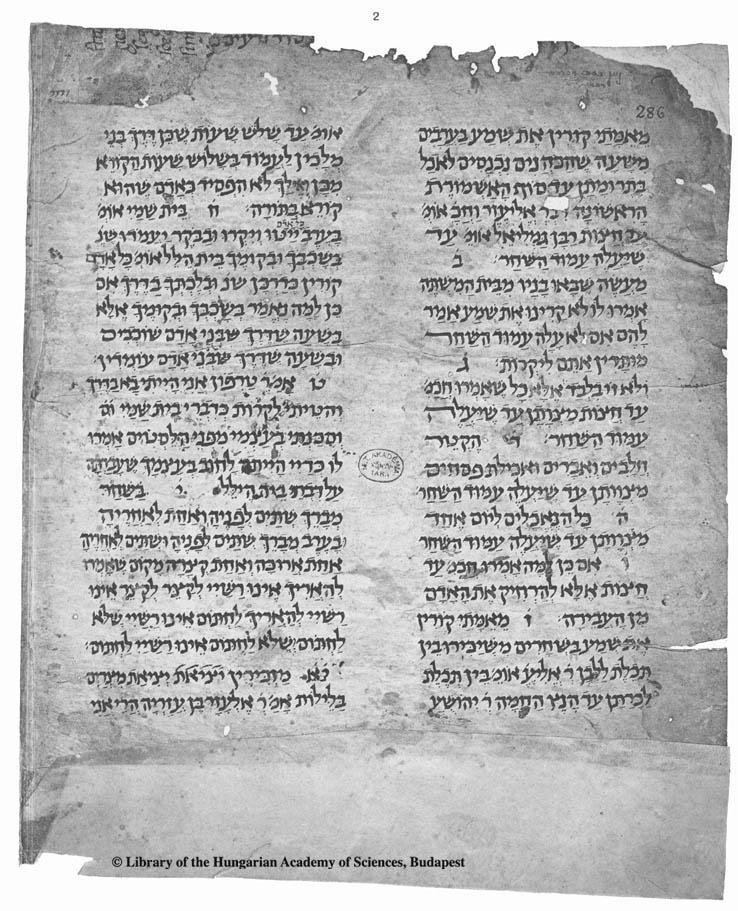 2
286
מאמתי קורין את שמע בערבים
משעה שהכהנים נכנסים לאכל
בתרומתן עד סוף האשמורת
הראשונה דבר אליעזר וחכ אומ׳
עד חצות רבן גמליאל אומ׳ עד
שיעלה עמוד השחר׳ ב
מעשה שבאו בניו מבית המשתה
אמרו לו לא קרינו את שמע אמר
להם אם לא עלה עמוד השחר
מותרין אתם ליקרות׳ ג
ולא זו בלבד אלא כל שאמרו חכמ׳
עד חצות מצוותן עד שיעלה
עמוד השחר׳ ד הקטר
חלבים ואברים ואכילת פסחים
מצוותן עד שיעלה עמוד השחר׳
ה׳ כל הנאכלים ליום אחד
מצוותן עד שיעלה עמוד השחר
ו אם כן למה אמרו חכמ׳ עד
חצות אלא להרחיק את האדם
מן העבירה׳ ז מאמתי קורין
את שמע בשחרים משיכירו בין
תכלת ללבן ר׳ אליע׳ אומ׳ בין תכלת
לכרתן עד הנץ החמה ר׳ יהושע
אומ׳ עד שלש שעות שכן דרך בני
מלכין לעמוד בשלוש שעות הקורא
מכן ואילך לא הפסיד כאדם שהוא
קורא בתורה׳ ח בית שמי אומ׳
כל אדם
בערב ייטו ויקרו ובבקר ויעמדו שנ׳
בשכבך ובקומך בית הלל אומ׳ כל אדם
קורין כדרכן שנ׳ ובלכתך בדרך אם
כן למה נאמר בשכבך ובקומך אלא
בשעה שדרך שבני אדם שוכבים
ובשעה שדרך שבני אדם עומדין׳
ט אמר טרפון אני הייתי בא בדרך
והטיתי לקרות כדברי בית שמי
וסכנתי בעצמי מפני הלסטים אמרו
לו כדיי הייתה לחוב בעצמך שעברתה
על דברי בית הילל׳ י בשחר
מברך שתים לפניה ואחת לאחריה
ובערב מברך שתים לפניה ושתים לאחריה
אחת ארוכה ואחת קיצרה מקום שאמרו
להאריך אינו רשיי לקצר לקצר אינו
רשיי להאריך לחתום אינו רשיי שלא
לחתום ושלא לחתום אינו רשיי לחתום׳
יא׳ מזכירין יציאת מצרים
בלילות אמ׳ ר׳ אלעזר בן עזריה הרי אני
M. T. AKADÉMIA KÖNYVTÁRA
© Library of the Hungarian Academy of Sciences, Budapest